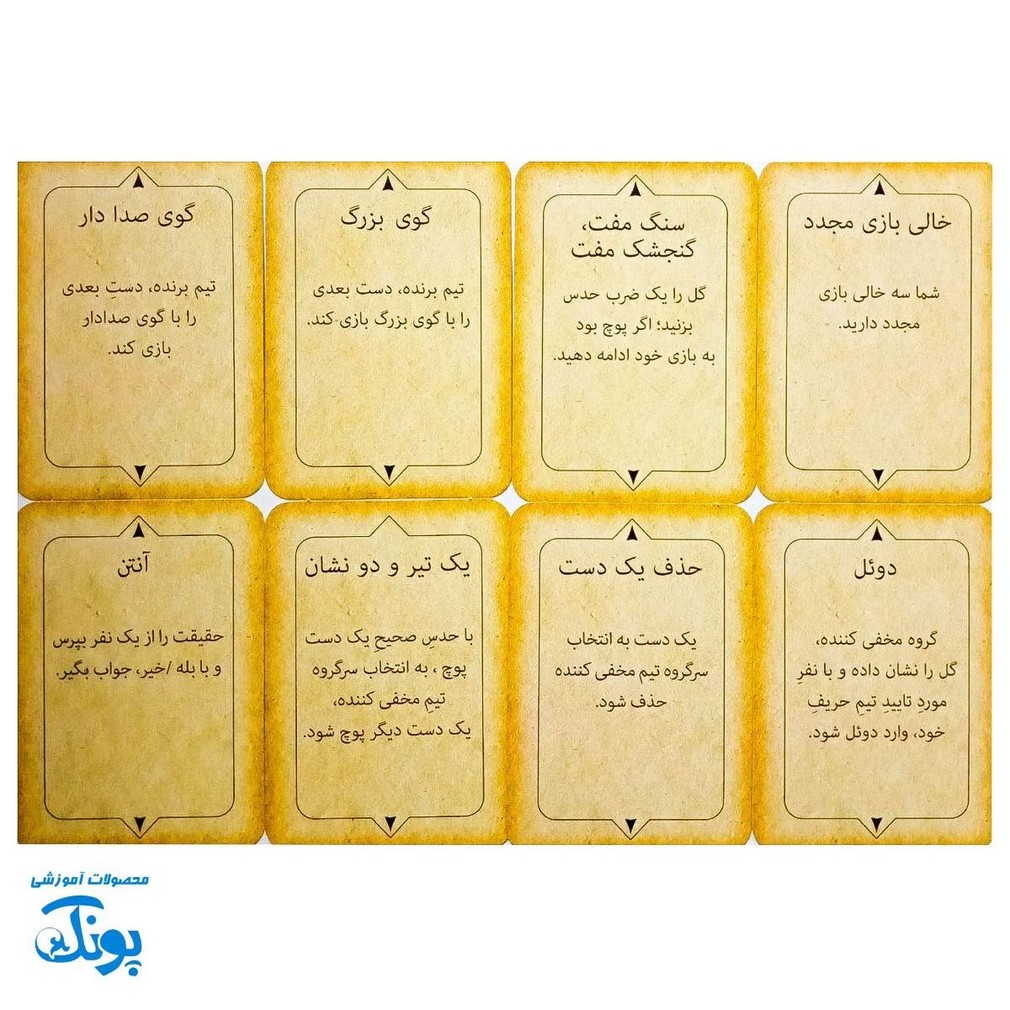 خالی بازی مجدد
شما سه خالی بازی
مجدد دارید.
سنگ مفت،
گنجشک مفت
گل را یک ضرب حدس
بزنید؛ اگر پوچ بود
به بازی خود ادامه دهید.
گوی بزرگ
تیم برنده، دست بعدی
را با گوی بزرگ بازی کند.
گوی صدا دار
تیم برنده، دستِ بعدی
را با گوی صدادار
بازی کند.
دوئل
گروه مخفی کننده،
گل را نشان داده و با نفرِ
موردِ تاییدِ تیمِ حریفِ
خود، وارد دوئل شود.
حذف یک دست
یک دست به انتخاب
سرگروه تیم مخفی کننده
حذف شود.
یک تیر و دو نشان
با حدسِ صحیحِ یک دست
پوچ ، به انتخاب سرگروه
تیمِ مخفی کننده،
یک دست دیگر پوچ شود.
آنتن
حقیقت را از یک نفر بپرس
و با بله /خیر، جواب بگیر.
محصولات آموزشی
پونک